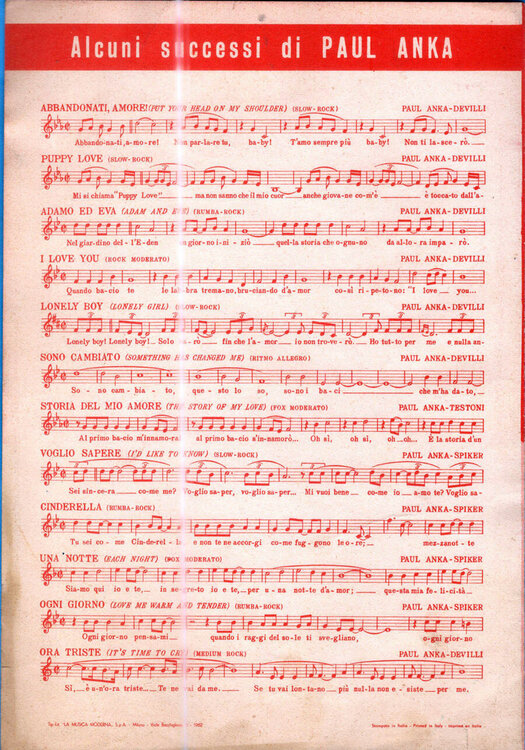 Alcuni successi di PAUL ANKA
ABBANDONATI, AMORE! (PUT YOUR HEAD ON MY SHOULDER) (SLOW-ROCK) PAUL ANKA-DEVILLI
Abbando-na-ti,a-more! Non par-la-re tu, ba-by! T'amo sempre più baby! Non ti la-sce-rò.
PUPPY LOVE (SLOW-ROCK) PAUL ANKA-DEVILLI
Mi si chiama "Puppy Love" ma non sanno che il mio cuor anche giova-ne co-m'è è tocca-to dall'a-
ADAMO ED EVA (ADAM AND EVE) (RUMBA-ROCK) PAUL ANKA-DEVILLI
Nel giar-dino del-l'E-den un gior-no i-ni-ziò quel-la storia che o-gnu-no da al-lo-ra impa-rò.
I LOVE YOU (ROCK MODERATO) PAUL ANKA-DEVILLI
Quando ba-cio te le lab-bra trema-no, bru-cian-do d'a-mor co-sì ri-pe-to-no: "I love you...
LONELY BOY (LONELY GIRL) (SLOW-ROCK) PAUL ANKA-DEVILLI
Lonely boy! Lonely boy!... Solo sa-rò fin che l'a-mor io non tro-ve-rò. Ho tut-to per me e nulla an-
SONO CAMBIATO (SOMETHING HAS CHANGED ME) (RITMO ALLEGRO) PAUL ANKA-DEVILLI
So-no cam-bia-to, que-sto lo so, so-no i ba-ci che m'ha da-to,
STORIA DEL MIO AMORE (THE STORY OF MY LOVE) (FOX MODERATO) PAUL ANKA-TESTONI
Al primo ba-cio m'innamo-rai al primo ba-cio s'in-namorò... Oh sì, oh sì, oh...oh... È la storia d'un
VOGLIO SAPERE (I'D LIKE TO KNOW) (SLOW-ROCK) PAUL ANKA-SPIKER
Sei sin-ce-ra co-me me? Vo-glio sa-per, vo-glio sa-per... Mi vuoi bene co-me io a-mo te? Voglio sa-
CINDERELLA (RUMBA-ROCK) PAUL ANKA-SPIKER
Tu sei co-me Cin-de-rel-la e non te ne accor-gi co-me fug-gono le o-re; mezzanot-te
UNA NOTTE (EACH NIGHT) (FOX MODERATO) PAUL ANKA-SPIKER
Sia-mo qui io e te, in se-gre-to io e te, per u-na not-te d'a-mor; que-sta mia fe-li-ci-tà
OGNI GIORNO (LOVE ME WARM AND TENDER) (RUMBA-ROCK) PAUL ANKA-SPIKER
Ogni gior-no pen-sa-mi quando i rag-gi del so-le ti sve-gliano, o-gni gior-no
ORA TRISTE (IT'S TIME TO CRY) (MEDIUM ROCK) PAUL ANKA-DEVILLI
Sì, è u-n'o-ra triste... Te ne vai da me. Se tu vai lon-ta-no più nul-la non e-siste per me.
Tip-Lit. "LA MUSICA MODERNA, S.p.A. - Milano - Viale 1962 Stampato in Italia - Printed in Italy - Imprimé en Italie